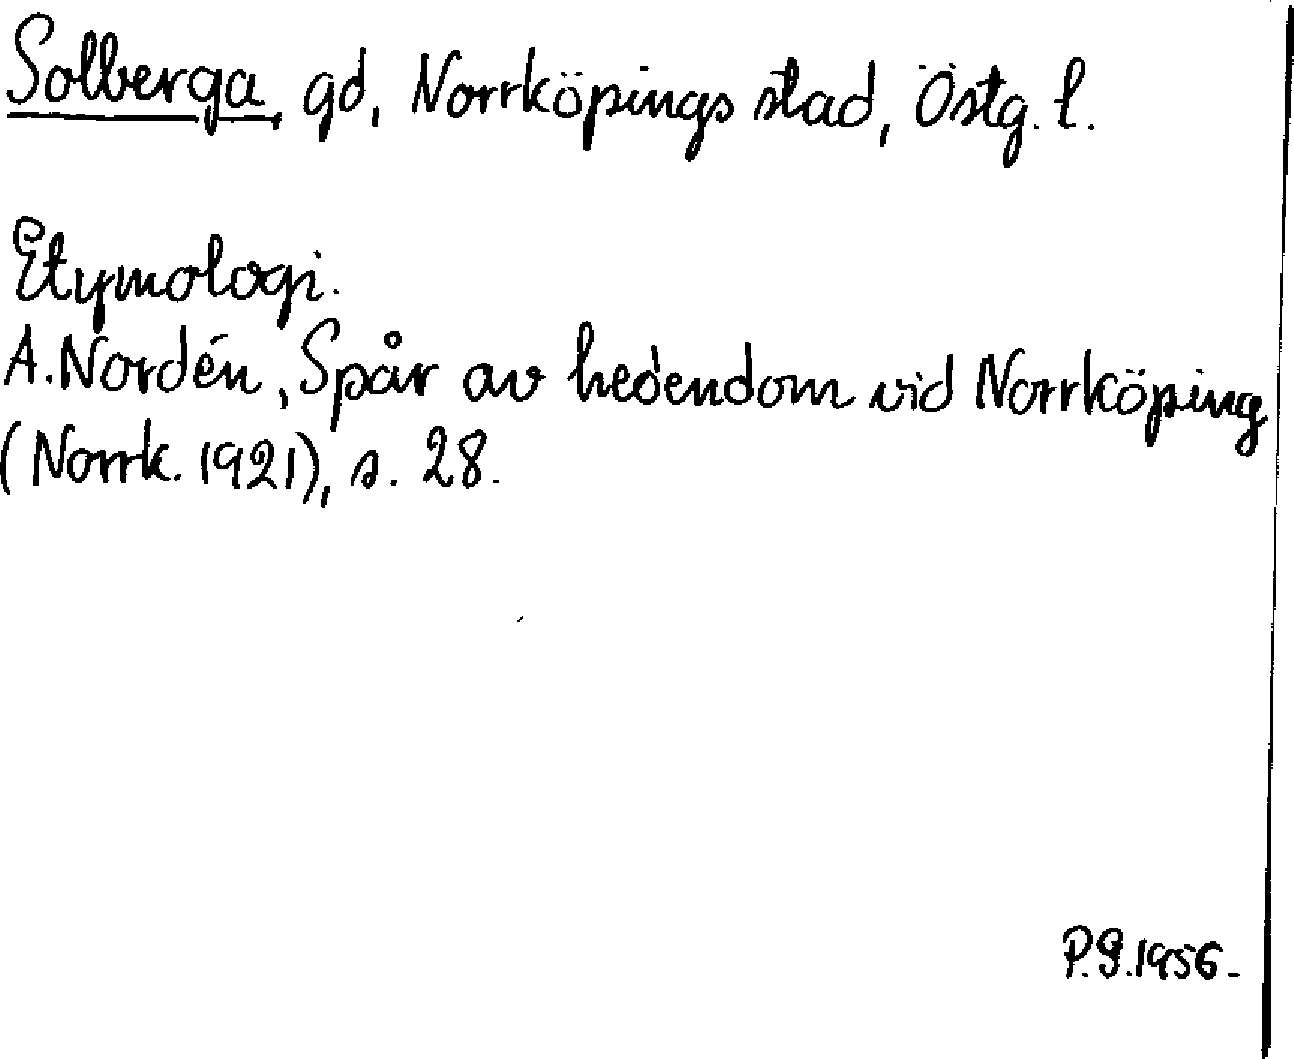 Solberga, gd, Norrköpings stad, Östg. l.
Etymologi.
A. Nordén, Spår av hedendom vid Norrköping
(Norrk. 1921), s. 28.
P.G.1956.